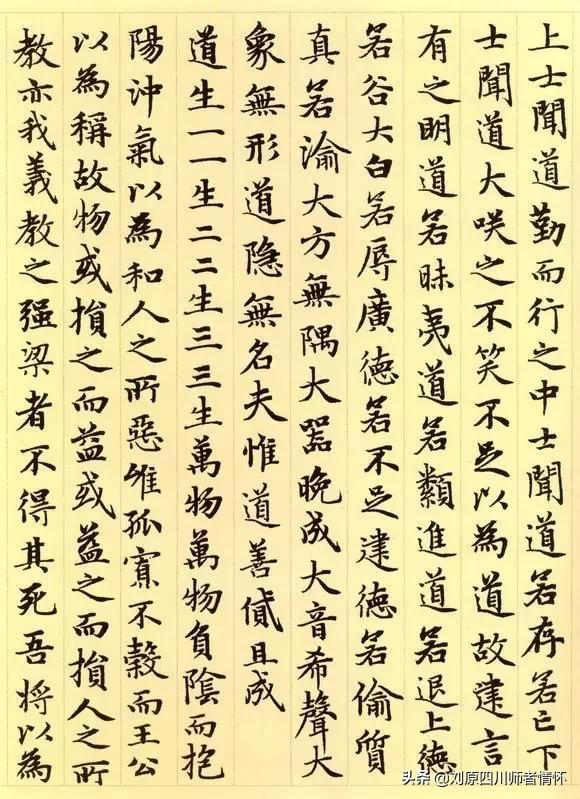 上士聞道勤而行之中士聞道若存若亡下
士聞道大咲之不笑不足以為道故建言
有之明道若昧夷道若纇進道若退上德
若谷大白若辱廣德若不足建德若偷質
真若渝大方無隅大器晚成大音希聲大
象無形道隐無名夫惟道善貸且成
道生一一生二二生三三生萬物萬物負陰而抱
陽沖氣以為和人之所惡唯孤寡不穀而王公
以為稱故物或損之而益或益之而損人之所
教亦我義教之强梁者不得其死吾将以為
头条 @刘原四川师者情怀